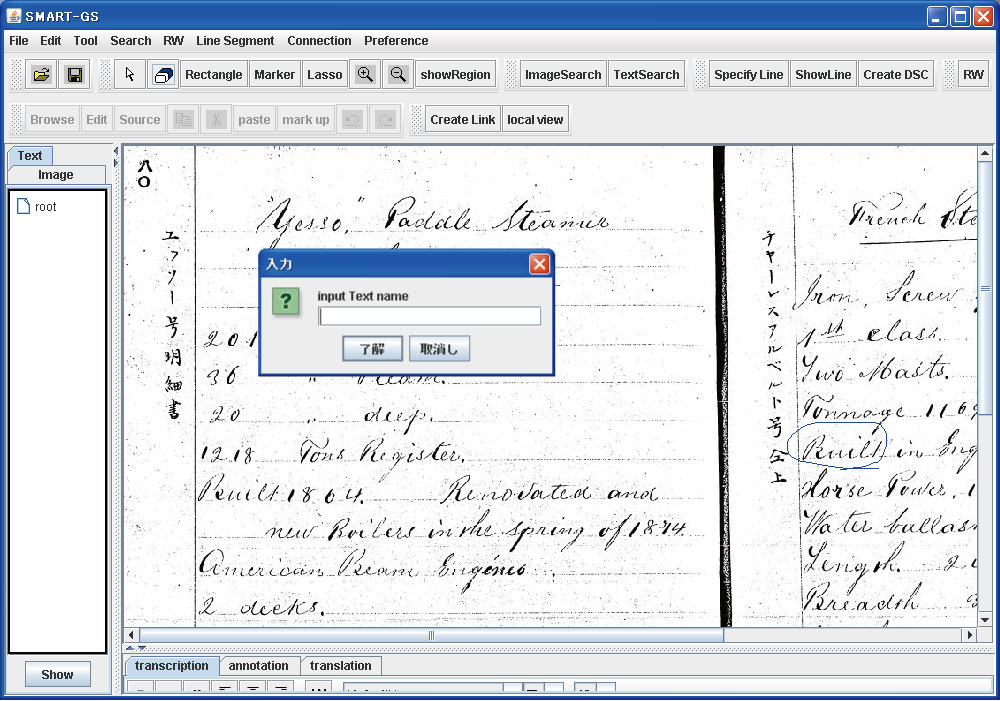 SMART-GS
File Edit Tool Search RW Line Segment Connection Preference
Rectangle Marker Lasso showRegion ImageSearch TextSearch Specify Line ShowLine Create DSC RW
Browse Edit Source paste mark up Create Link local view
Text
Image
root
Show
八〇
エッソー号明細書
"Yesso," Paddle Steamer
入力
?
input Text name
了解 取消し
201
36 " Beam.
20 " deep.
1218 Tons Register.
Built 1864. Renovated and
new Boilers in the spring of 1874.
American Beam Engines.
2 decks.
チャーレスアルベルト号仝上
French Ste
Iron, Screw
1st class.
Two Masts.
Tonnage 1109
Built in Eng
Horse Power, 1
Water ballas
Length. 2
Breadth
transcription annotation translation